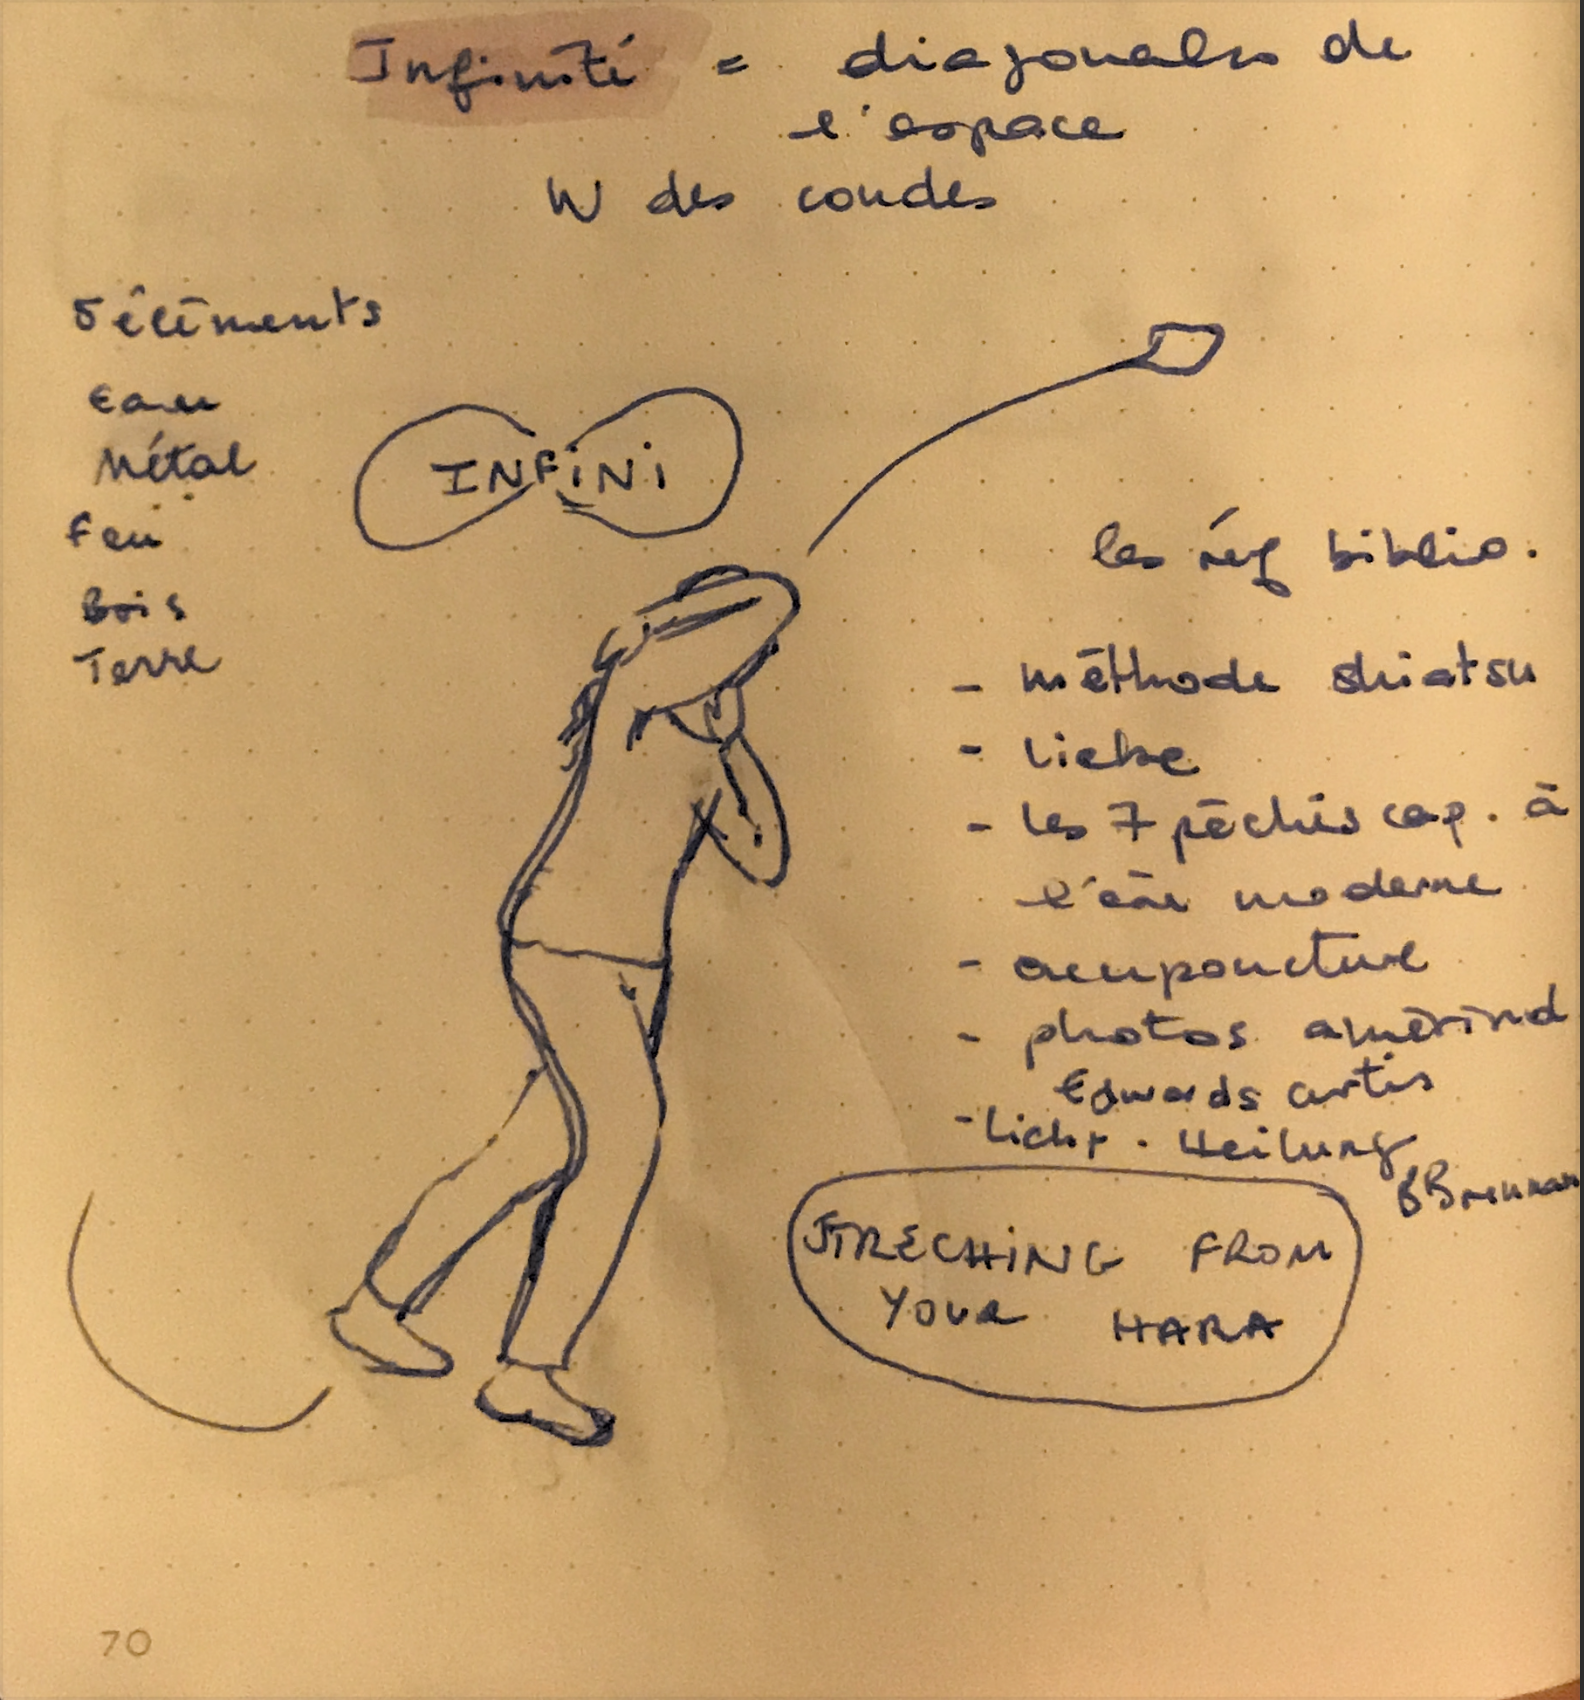 Infinité = diagonales de
l'espace
W des coudes
5 éléments
Eau
Métal
Feu
Bois
Terre
INFINI
les réf biblio.
- méthode shiatsu
- Liebe
- les 7 péchés cap. à
l'ère moderne
- acuponcture
- photos amérind
Edwards Curtis
- Licht. Heilung
B Brennan
STRECHING FROM
YOUR HARA
70